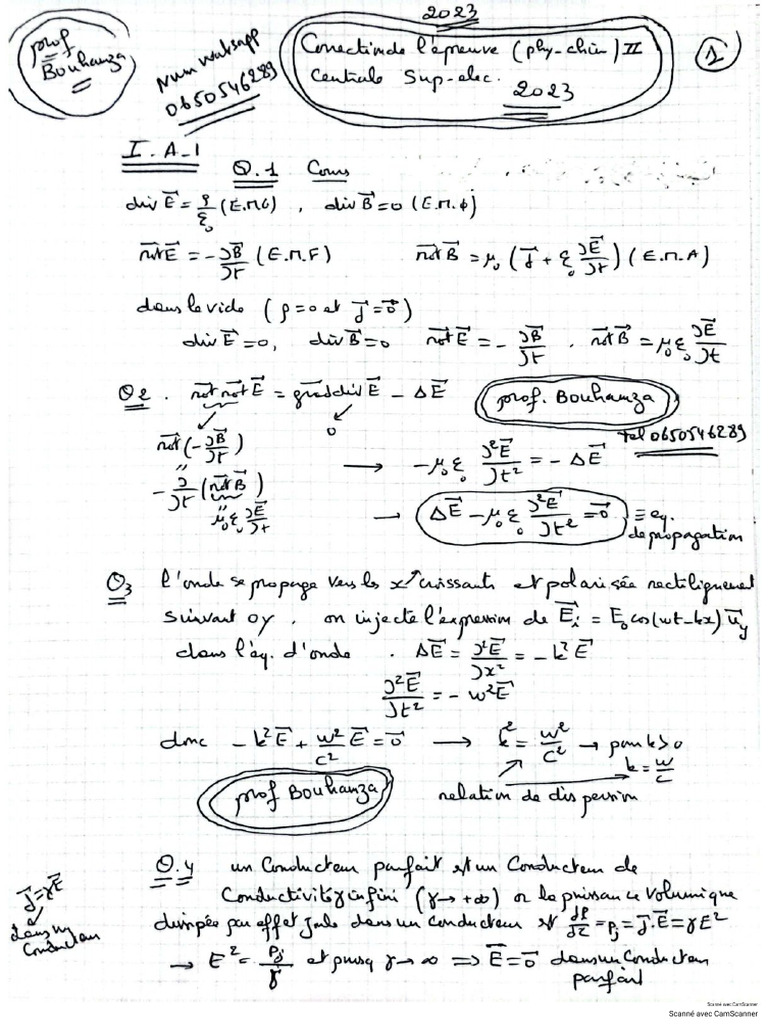 2023
prof Bouhanza
Num Watsapp
0650546289
Correction de l'épreuve (phy-chim) II
Centrale Sup-elec.
2023
1
I.A-1
Q.1 Cours
div E⃗ = ρ/ε₀ (E.M.G) , div B⃗ = 0 (E.M.φ)
rot⃗ E⃗ = -∂B⃗/∂t (E.M.F) rot⃗ B⃗ = μ₀ (J⃗ + ε₀ ∂E⃗/∂t) (E.M.A)
dans le vide (ρ=0 et J⃗=0⃗)
div E⃗=0, div B⃗=0 rot⃗ E⃗ = -∂B⃗/∂t . rot⃗ B⃗ = μ₀ε₀ ∂E⃗/∂t
Q2. rot⃗ rot⃗ E⃗ = grad⃗ div E⃗ - ΔE⃗
prof. Bouhanza
Tel 0650546289
rot⃗ (-∂B⃗/∂t) 0
" → -μ₀ε₀ ∂²E⃗/∂t² = -ΔE⃗
-∂/∂t (rot⃗ B⃗)
"
μ₀ε₀ ∂E⃗/∂t → ΔE⃗ - μ₀ε₀ ∂²E⃗/∂t² = 0⃗ ≡ eq.
de propagation
Q3 l'onde se propage vers les x croissants et polarisée rectilignement
suivant oy . on injecte l'expression de E⃗ᵢ = E₀ cos(ωt-kx) u⃗y
dans l'éq. d'onde . ΔE⃗ = ∂²E⃗/∂x² = -k²E⃗
∂²E⃗/∂t² = -ω²E⃗
donc -k²E⃗ + ω²/c² E⃗ = 0⃗ → k² = ω²/c² → pour k>0
k = ω/c
prof Bouhanza
relation de dispersion
Q.4 un Conducteur parfait est un Conducteur de
Conductivité γ infini (γ → +∞) or la puissance volumique
J⃗=γE⃗
dans un
Conducteur
dissipée par effet Joule dans un conducteur est dP/dτ = Pj = J⃗.E⃗ = γE²
→ E² = Pj/γ et puisq γ → ∞ ⟹ E⃗=0⃗ dans un Conducteur
parfait
Scanné avec CamScanner
Scanné avec CamScanner